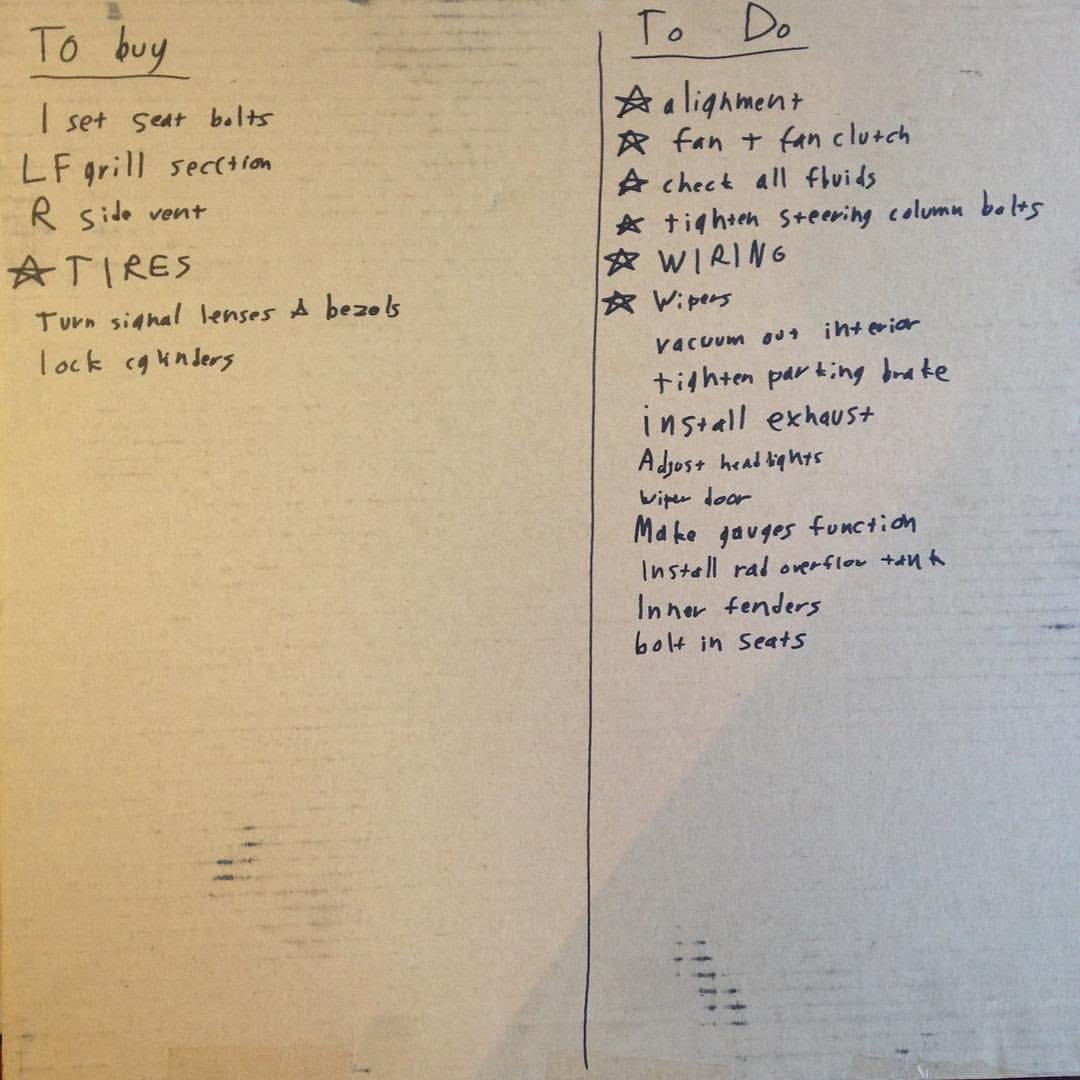 To buy
1 set seat bolts
LF grill secction
R side vent
☆ TIRES
Turn signal lenses & bezels
lock cylinders
To Do
☆ alighment
☆ fan + fan clutch
☆ check all fluids
☆ tighten steering column bolts
☆ WIRING
☆ Wipers
vacuum out interior
tighten parking brake
install exhaust
Adjust headlights
wiper door
Make gauges function
Install rad overflow tank
Inner fenders
bolt in seats